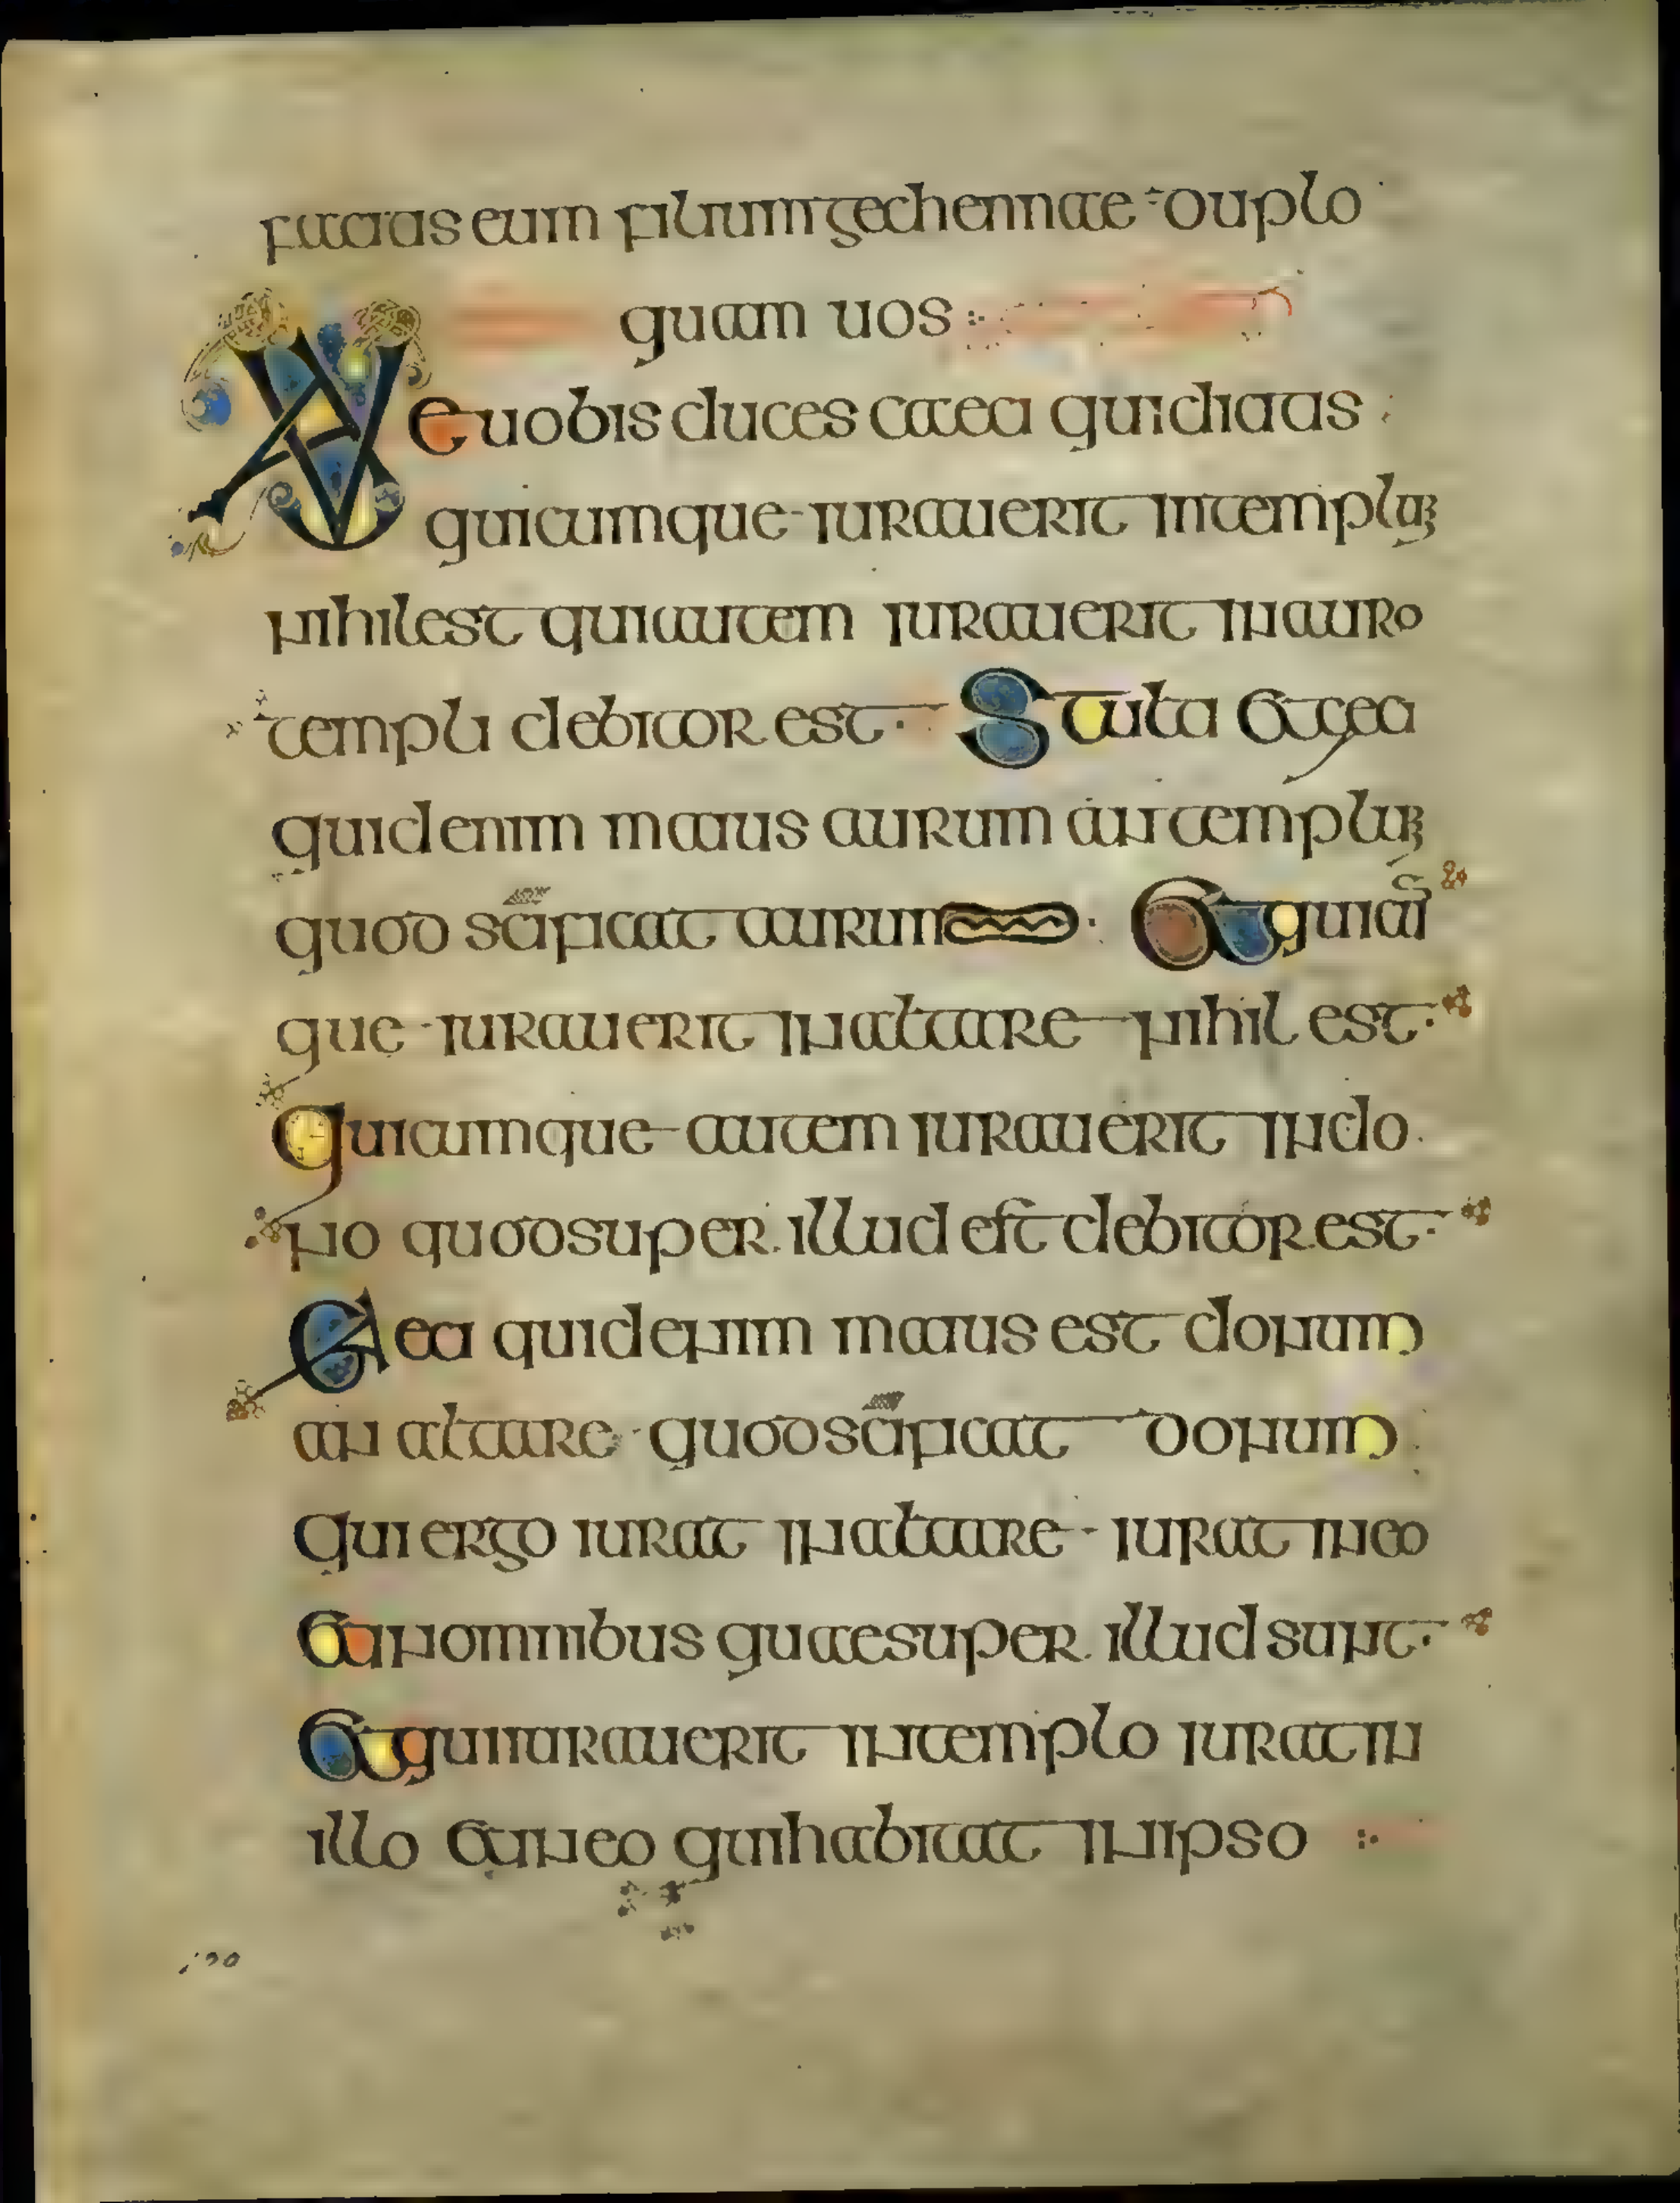 facitis eum filium gechennae duplo
quam uos
Vae uobis duces caeci qui dicitis
quicumque iurauerit in templum
nihil est qui autem iurauerit in auro
templi debitor est Stulti et caeci
quid enim maius aurum an templum
quod scificat aurum Et quicū
que iurauerit in altare nihil est
Quicumque autem iurauerit in do
no quod super illud est debitor est
Caeci quid enim maius est donum
an altare quod scificat donum
Qui ergo iurat in altare iurat in eo
et in omnibus quae super illud sunt
Et qui iurauerit in templo iurat in
illo et in eo qui habitat in ipso